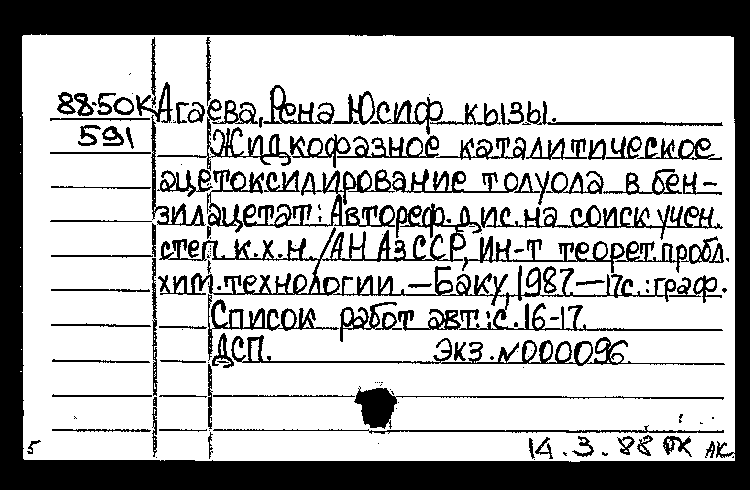 88-50К Агаева, Рена Юсиф кызы.
591 Жидкофазное каталитическое
ацетоксилирование толуола в бен-
зилацетат: Автореф. дис. на соиск учен.
степ. к.х.н. /АН АзССР, Ин-т теорет. пробл.
хим. технологии. — Баку, 1987. — 17с.: граф.
Список работ авт.: с. 16-17.
ДСП. Экз. №000096.
5 14.3.88 РК АК